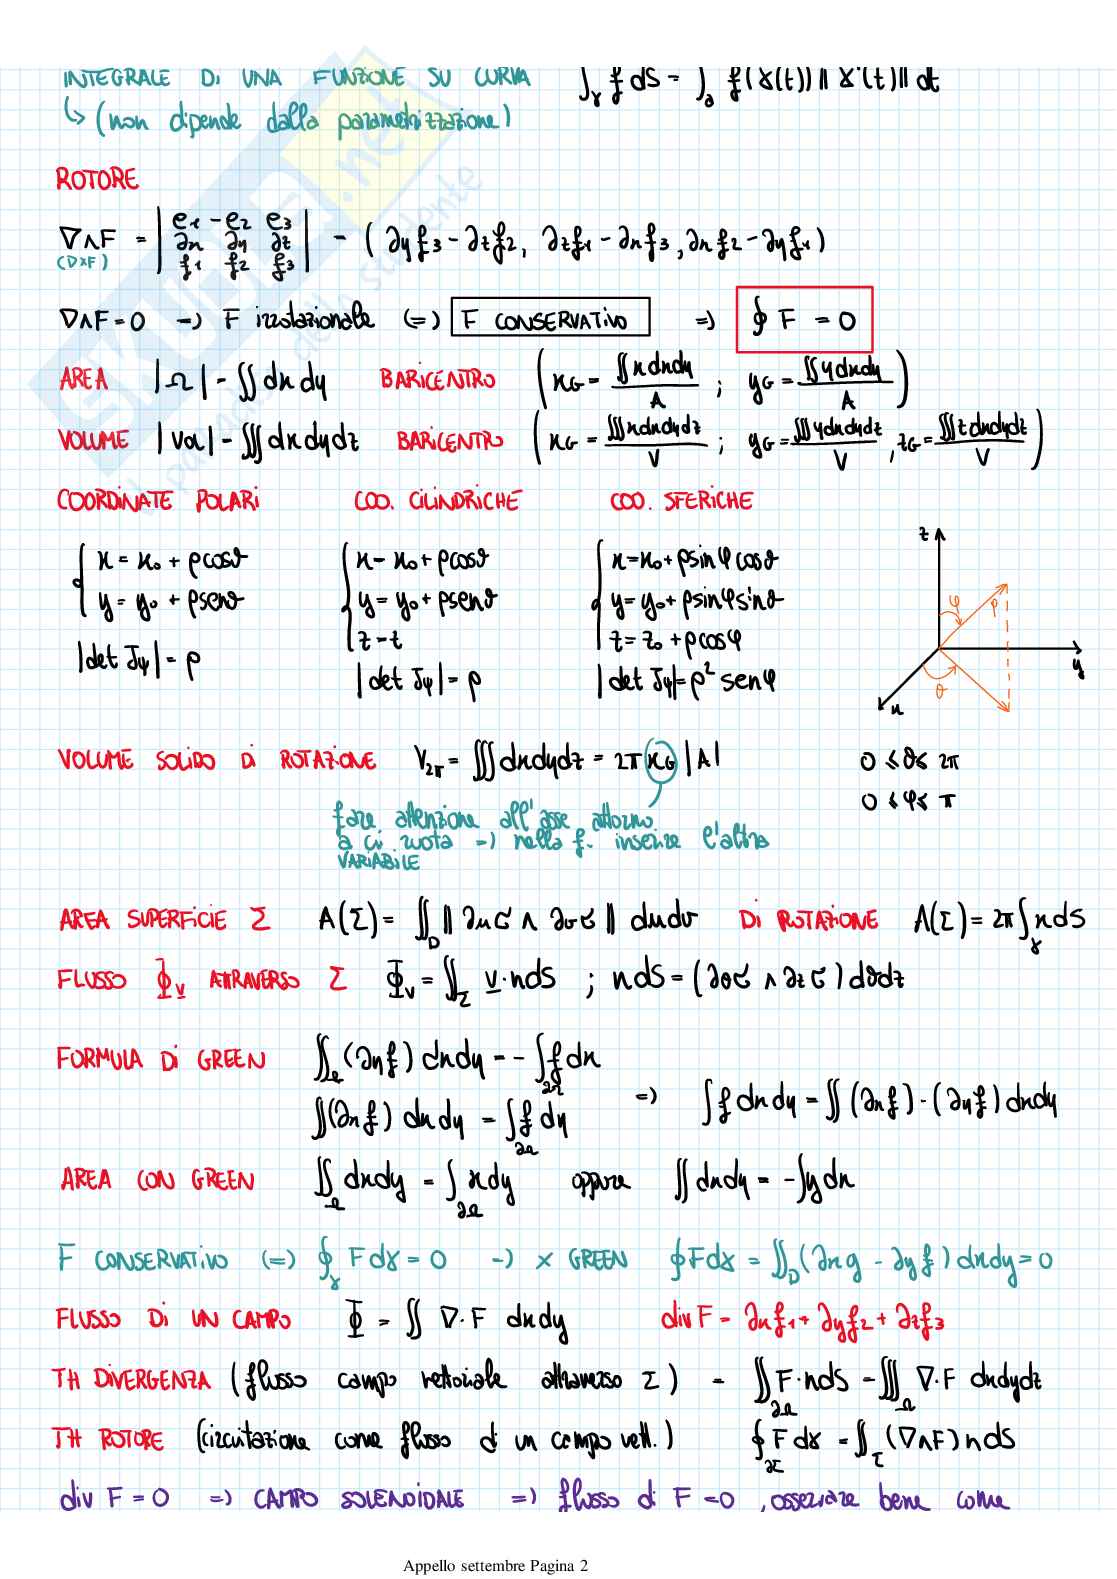 INTEGRALE DI UNA FUNZIONE SU CURVA ∫_γ f dS = ∫_a f(γ(t)) ‖γ'(t)‖ dt
↳ (non dipende dalla parametrizzazione)
ROTORE
∇∧F = | e1 -e2 e3 ; ∂x ∂y ∂z ; f1 f2 f3 | = (∂y f3 - ∂z f2, ∂z f1 - ∂x f3, ∂x f2 - ∂y f1)
(∇×F)
∇∧F = 0 → F irrotazionale (=) F CONSERVATIVO => ∮ F = 0
AREA |Ω| = ∬ dx dy BARICENTRO ( xG = ∬ x dxdy / A ; yG = ∬ y dxdy / A )
VOLUME |Vol| = ∭ dxdydz BARICENTRO ( xG = ∭ x dxdydz / V ; yG = ∭ y dxdydz / V , zG = ∭ z dxdydz / V )
COORDINATE POLARI COO. CILINDRICHE COO. SFERICHE
x = x0 + ρcosθ x = x0 + ρcosθ x = x0 + ρsinφcosθ
y = y0 + ρsenθ y = y0 + ρsenθ y = y0 + ρsinφsinθ
z = t z = z0 + ρcosφ
|det Jψ| = ρ |det Jψ| = ρ |det Jψ| = ρ² senφ
z φ ρ θ x y
VOLUME SOLIDO DI ROTAZIONE V2π = ∭ dxdydz = 2π xG |A| 0 ≤ θ ≤ 2π
0 ≤ φ ≤ π
fare attenzione all'asse attorno
a ci ruota => nella f. inserire l'altra
VARIABILE
AREA SUPERFICIE Σ A(Σ) = ∬_D ‖∂uσ ∧ ∂vσ‖ dudv DI ROTAZIONE A(Σ) = 2π ∫_γ x dS
FLUSSO Φ_v ATTRAVERSO Σ Φ_v = ∬_Σ v·n dS ; n dS = (∂θσ ∧ ∂zσ) dθdz
FORMULA DI GREEN ∬_Ω (∂y f) dxdy = - ∫_∂Ω f dx
∬ (∂x f) dxdy = ∫_∂Ω f dy => ∫ f dxdy = ∬ (∂x f) - (∂y f) dxdy
AREA CON GREEN ∬_Ω dxdy = ∫_∂Ω x dy oppure ∬ dxdy = - ∫ y dx
F CONSERVATIVO (=) ∮_γ F dγ = 0 → × GREEN ∮ F dγ = ∬_D (∂x g - ∂y f) dxdy = 0
FLUSSO DI UN CAMPO Φ = ∬ ∇·F dxdy div F = ∂x f1 + ∂y f2 + ∂z f3
TH DIVERGENZA (flusso campo vettoriale attraverso Σ) = ∬_∂Ω F·n dS = ∭_Ω ∇·F dxdydz
TH ROTORE (circuitazione come flusso di un campo vett.) ∮_∂Σ F dγ = ∬_Σ (∇∧F) n dS
div F = 0 => CAMPO SOLENOIDALE => flusso di F = 0, osservare bene come
Appello settembre Pagina 2
SKUOLA.net